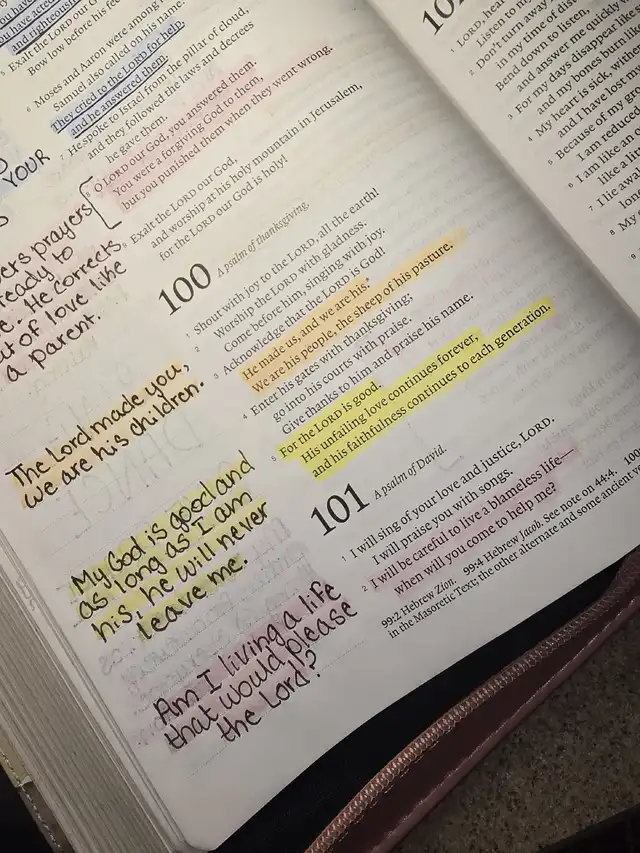 and righteousness
Exalt the LORD our God!
Bow low before his feet
6 Moses and Aaron were among
Samuel also called on his name.
They cried to the LORD for help,
and he answered them.
7 He spoke to Israel from the pillar of cloud,
and they followed the laws and decrees
he gave them.
O LORD our God, you answered them.
You were a forgiving God to them,
but you punished them when they went wrong.
Exalt the LORD our God,
and worship at his holy mountain in Jerusalem,
for the LORD our God is holy!
100 A psalm of thanksgiving.
1 Shout with joy to the LORD, all the earth!
2 Worship the LORD with gladness.
Come before him, singing with joy.
3 Acknowledge that the LORD is God!
He made us, and we are his.*
We are his people, the sheep of his pasture.
4 Enter his gates with thanksgiving;
go into his courts with praise.
Give thanks to him and praise his name.
5 For the LORD is good.
His unfailing love continues forever,
and his faithfulness continues to each generation.
101 A psalm of David.
1 I will sing of your love and justice, LORD.
I will praise you with songs.
2 I will be careful to live a blameless life—
when will you come to help me?
99:2 Hebrew Zion. 99:4 Hebrew Jacob. See note on 44:4. 100
in the Masoretic Text; the other alternate and some ancient
YOUR
prayers
ready to
He corrects
out of love like
a parent.
The Lord made you,
we are his children.
My God is good and
as long as I am
his, he will never
leave me.
Am I living a life
that would please
the Lord?
10
1 LORD, hear
Listen to my
2 Don't turn away
in my time of
Bend down to listen,
and answer me quickly
3 For my days disappear like
and my bones burn like
4 My heart is sick, with
and I have lost my
5 Because of my
I am reduced
6 I am like an
like a
7 I lie awake
8 My
9